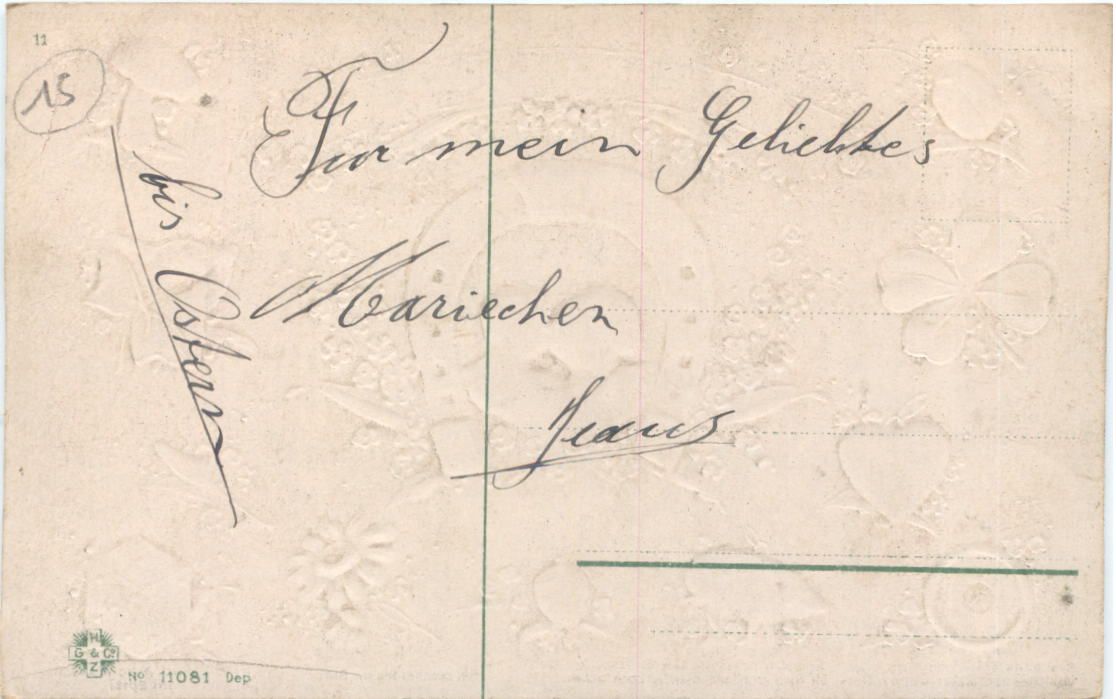 11
15
Fur mein Geliebtes
bis Ostern
Mariechen
H
G & Co
Z
No 11081 Dep